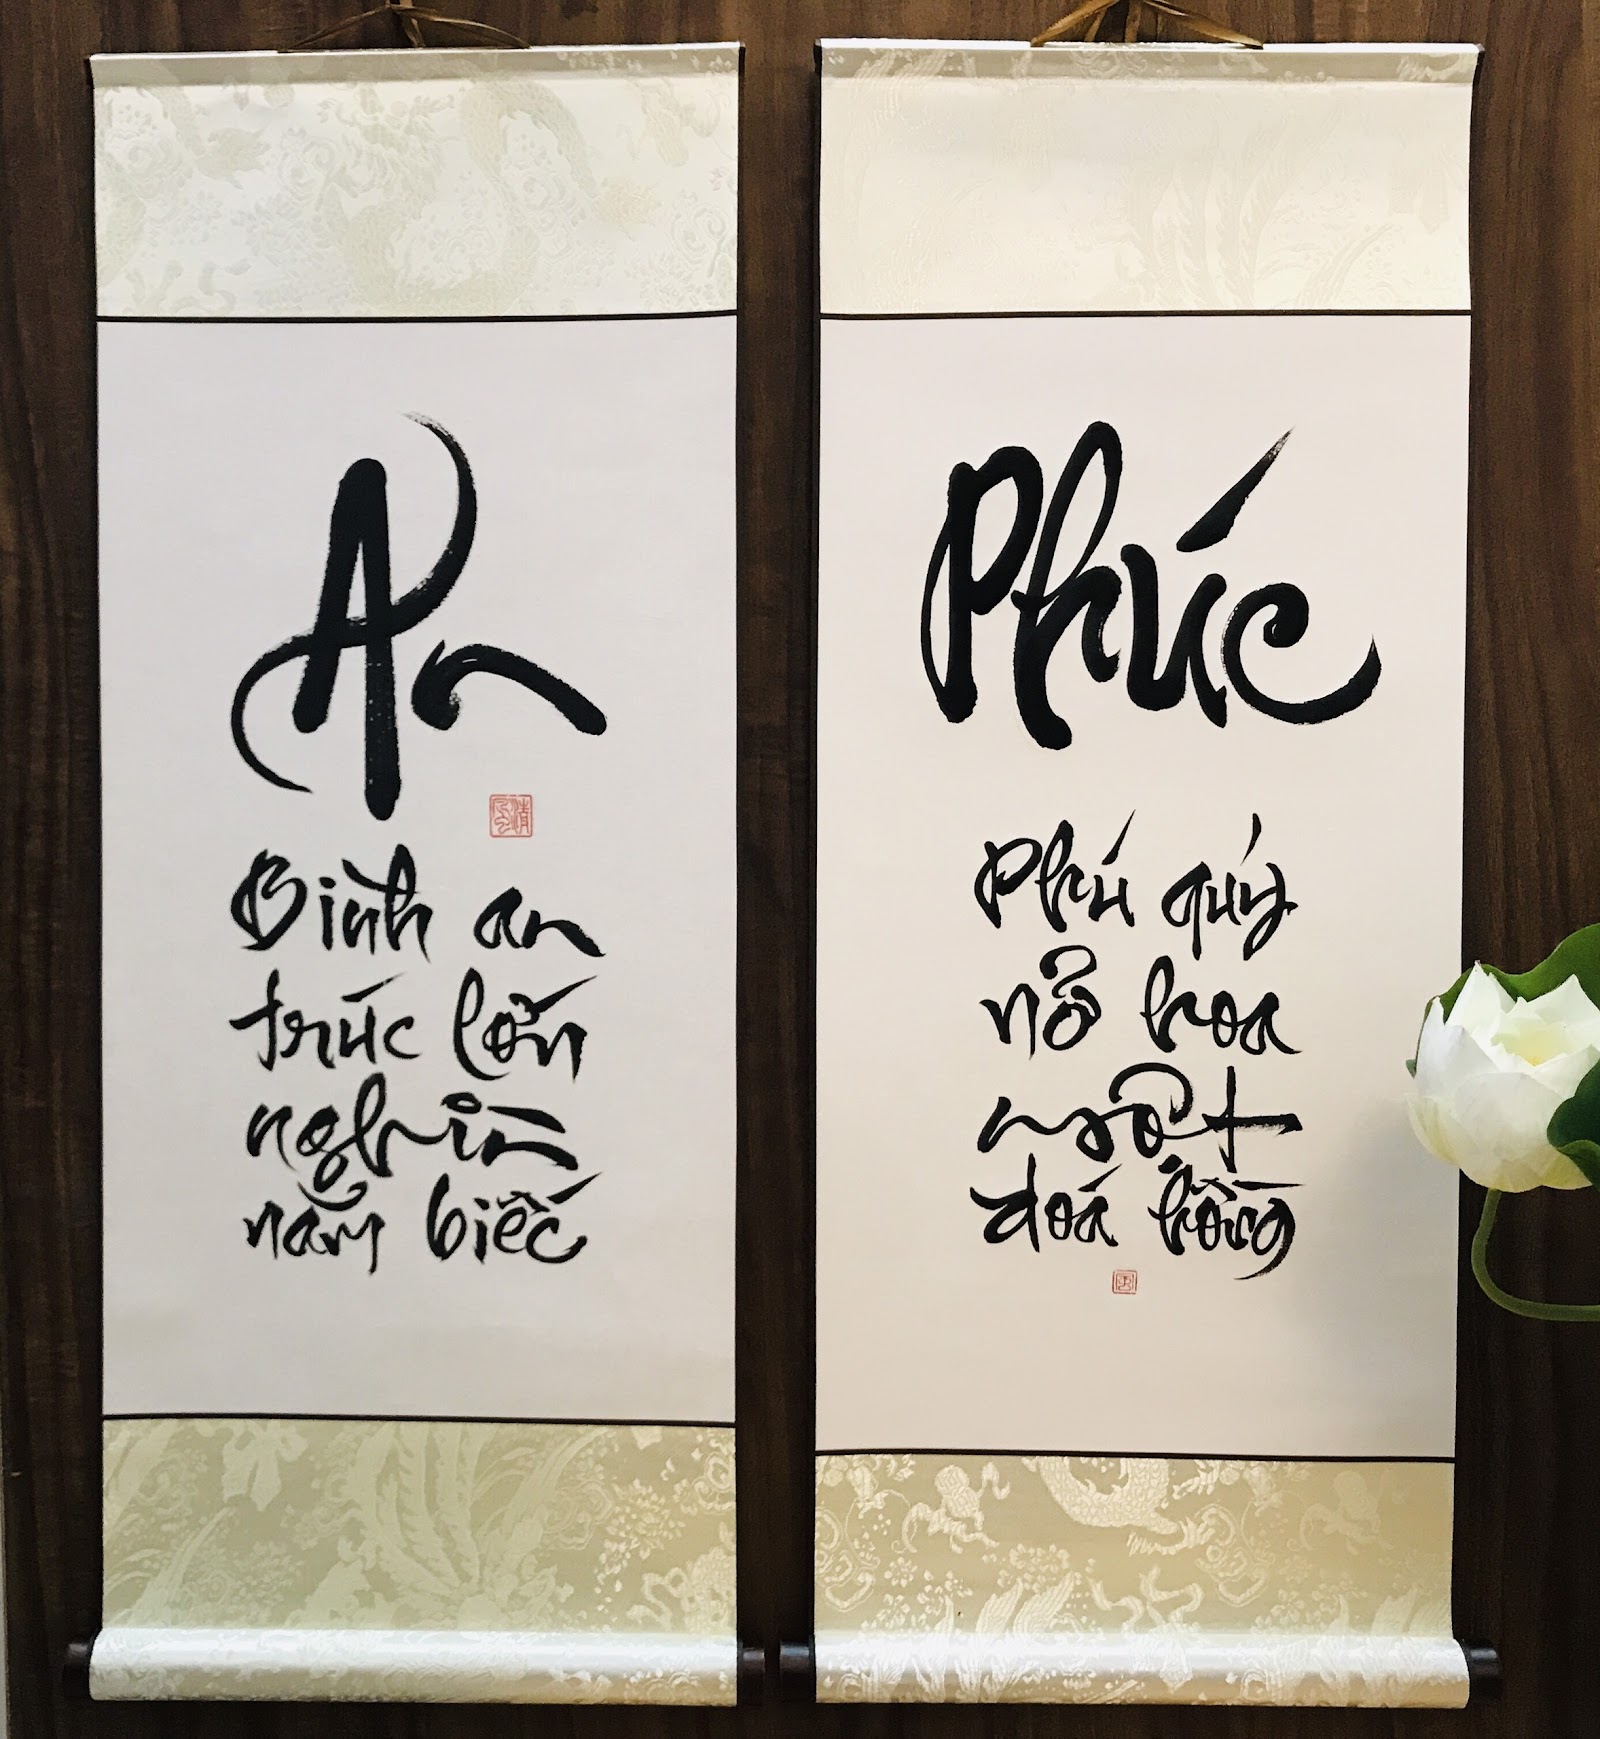 An
Bình an
trúc lớn
nghìn
năm biếc
Phúc
Phú quý
nở hoa
một
đoá hồng